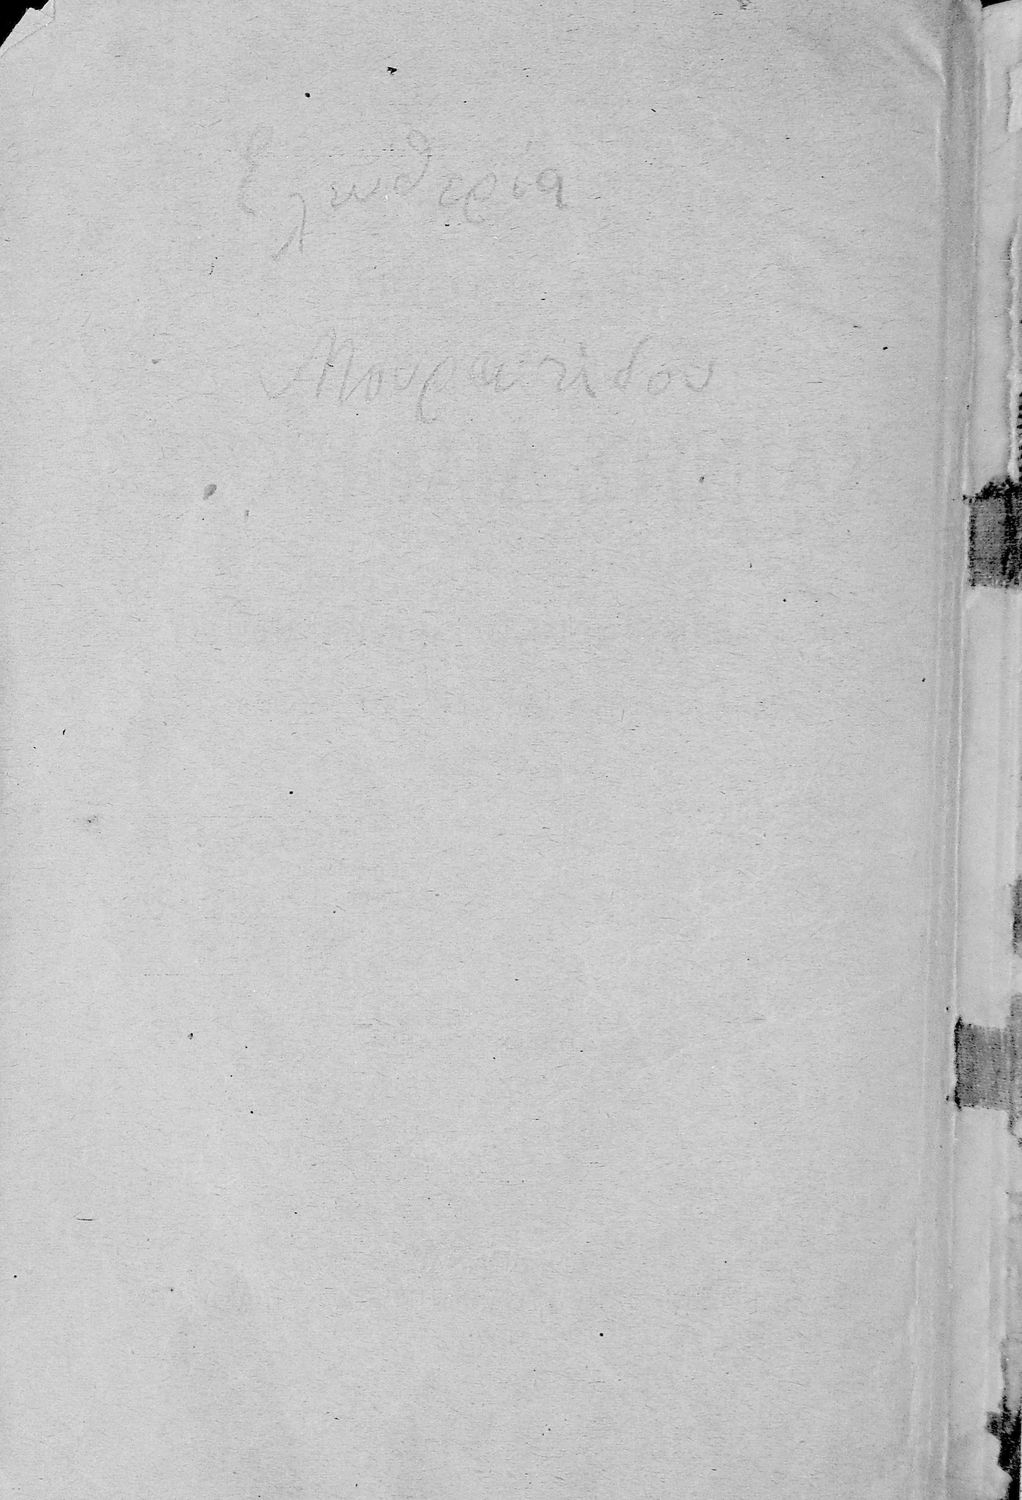 Ελευθερία
Μουρατίδου